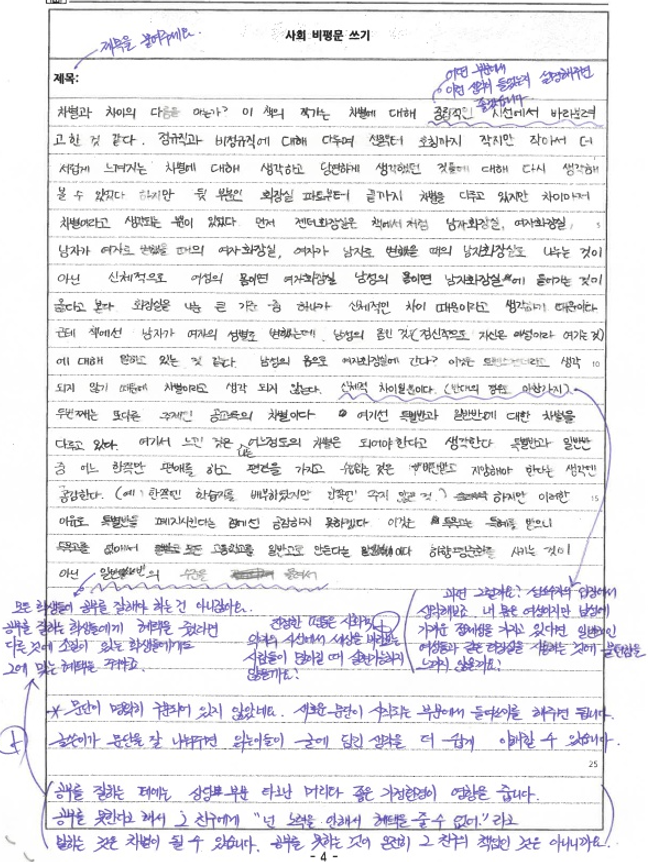 사회 비평문 쓰기
제목을 붙여주세요.
제목:
어떤 부분에서
이런 생각이 들었는지 설명해주면
좋겠습니다
차별과 차이의 다음을 아는가? 이 책의 작가는 차별에 대해 중립적인 시선에서 바라보려
고 한 것 같다. 정규직과 비정규직에 대해 다루며 까지 작지만 작아서 더
서럽게 느껴지는 차별에 대해 생각하고 당연하게 생각했던 것들에 대해 다시 생각해
볼 수 있었다 하지만 뒷 부분인 화장실 파트부터 끝까지 차별을 다루고 있지만 차이이지
차별이라고 생각되는 분이 있었다. 먼저 젠더화장실은 책에서처럼 남자화장실, 여자화장실, 5
남자가 여자로 변했을 때의 여자화장실, 여자가 남자로 변했을 때의 남자화장실로 나누는 것이
아닌 신체적으로 여성의 몸이면 여자화장실 남성의 몸이면 남자화장실에 들어가는 것이
옳다고 본다 화장실을 나눈 큰 기준 중 하나가 신체적인 차이 때문이라고 생각하기 때문이다
근데 책에선 남자가 여자의 성별로 변했는데 남성의 몸인 것(정신적으로 자신은 여성이라 여기는 것)
에 대해 말하고 있는 것 같다. 남성의 몸으로 여자화장실에 간다? 이것은 생각 10
되지 않기 때문에 차별이라고 생각 되지 않는다. 신체적 차이일뿐이다. (반대의 경우도 마찬가지).
두번째는 또다른 주제인 공교육의 차별이다 여기선 특별반과 일반반에 대한 차별을
다루고 있다. 여기서 느낀 것은 나는 어느정도의 차별은 되어야 한다고 생각한다 특별반과 일반반
중 어느 한쪽만 편애를 하고 편견을 가지고 것은 지양해야 한다는 생각엔
공감한다. (예: 한쪽엔 학습지를 배부하였지만 한쪽엔 주지 않은 것.) 하지만 이러한 15
이유로 특별반을 폐지시킨다는 점에선 공감하지 못하겠다 이것은 특목고는 특혜를 받으니
특목고를 없애서 모든 고등학교를 일반고로 만든다는 하향평준화를 시키는 것이
아닌 일반반의 수준을 올려서
모든 학생들이 공부를 잘해야 하는 건 아니잖아요.
공부를 잘하는 학생들에게 혜택을 줬다면
다른 것에 소질이 있는 학생들에게도
그에 맞는 혜택을 주려고.
진정한 평등은 사회적
의 시선에서 세상을 바라보는
사람들이 많아질 때 실현가능하지
않을까요?
과연 그럴까요? 성소수자의 입장에서
생각해보고 내 몸은 여성이지만 남성에
가까운 정체성을 가지고 있다면 일반적인
여성들과 같은 화장실을 사용하는 것에 불편함을
느끼지 않을까요?
* 문단이 명확히 구분되어 있지 않았네요. 새로운 문단이 시작되는 부분에서 들여쓰기를 해주면 됩니다.
글쓴이가 문단을 잘 나눠주면 읽는이들이 글에 담긴 생각을 더 쉽게 이해할 수 있습니다.
25
공부를 잘하는 데에는 상당부분 타고난 머리나 좋은 가정환경이 영향을 줍니다.
공부를 못한다고 해서 그 친구에게 "넌 노력을 안해서 혜택을 줄 수 없어." 라고
말하는 것은 차별이 될 수 있습니다. 공부를 못하는 것이 온전히 그 친구의 책임인 것은 아니니까요.
- 4 -